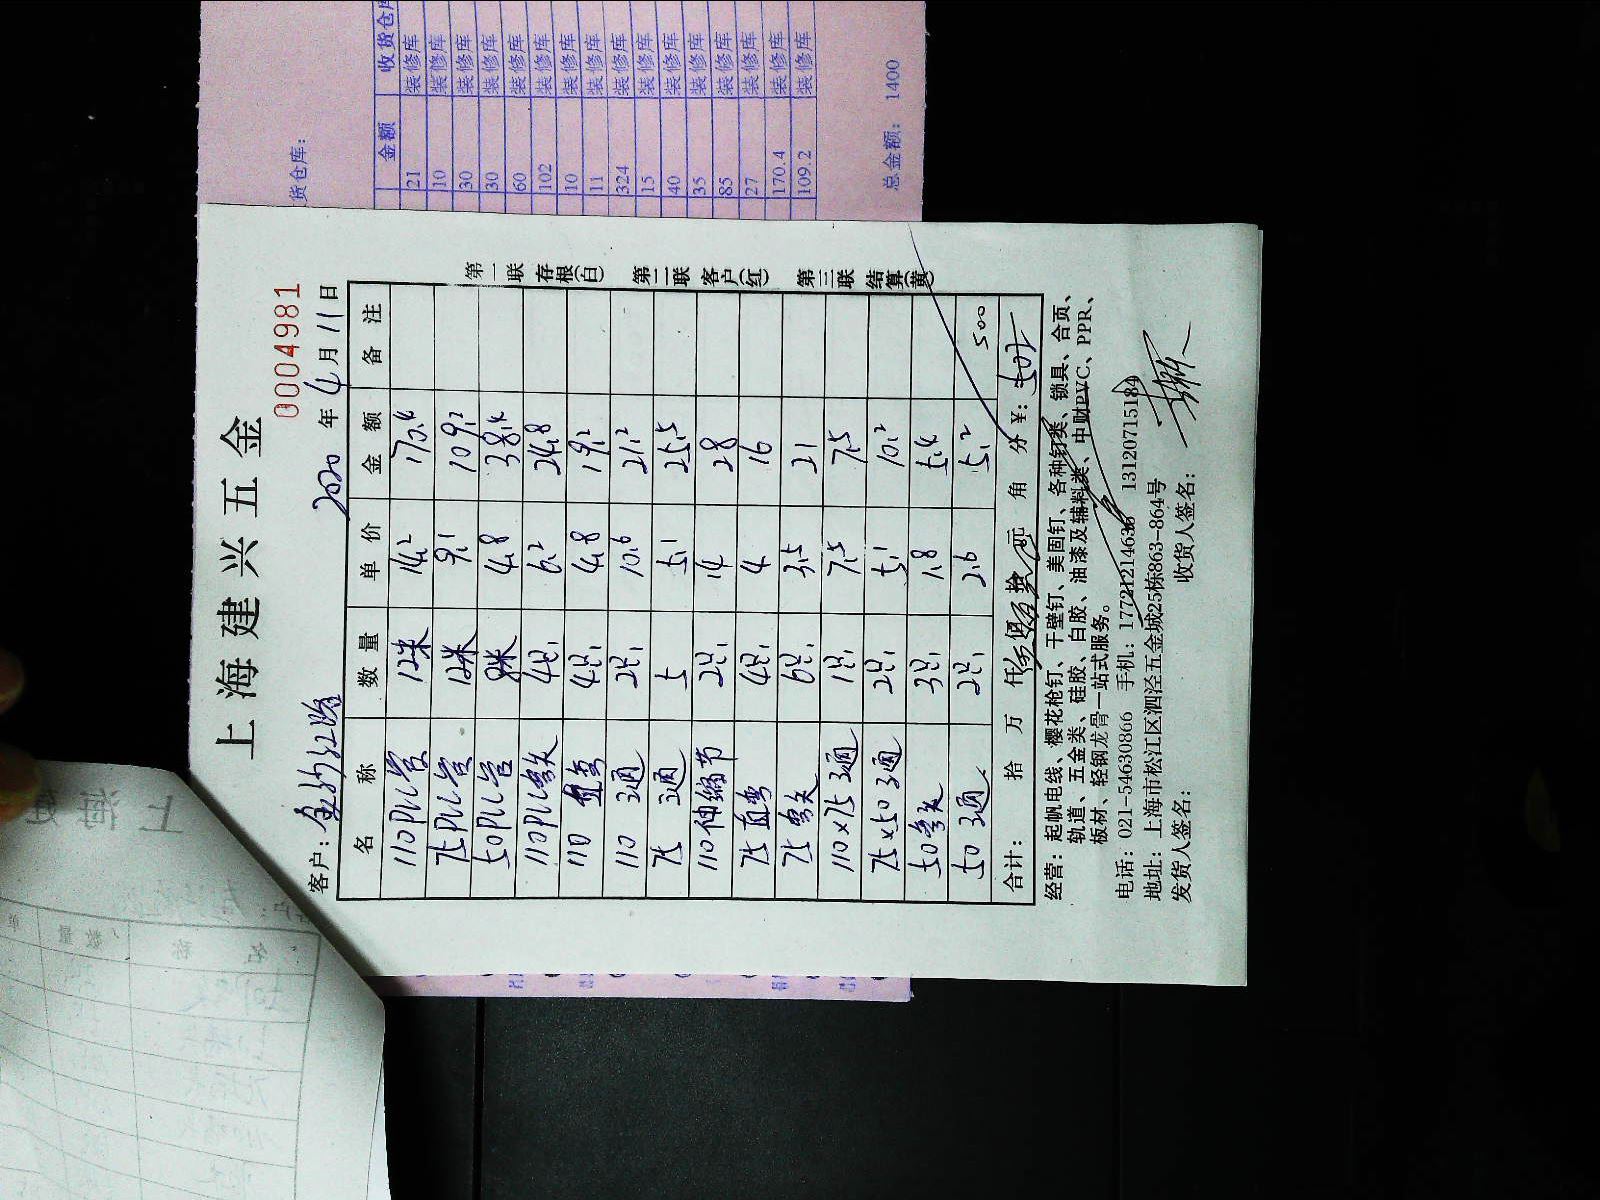 货仓库:
金额 收货仓库
21 装修库
10 装修库
30 装修库
30 装修库
60 装修库
102 装修库
10 装修库
11 装修库
324 装修库
15 装修库
40 装修库
35 装修库
85 装修库
27 装修库
170.4 装修库
109.2 装修库
总金额: 1400
上海建兴五金
0004981
客户: 2020 年 4 月 11 日
名 称 数 量 单 价 金 额 备 注
110 PVC管 12米 14.2 170.4
75 PVC管 12米 9.1 109.2
50 PVC管 8米 4.8 38.4
110 PVC弯头 4只 6.2 24.8
110 直弯 4只 4.8 19.2
110 3通 2只 10.6 21.2
75 3通 5 5.1 25.5
110 伸缩节 2只 14 28
75 直弯 4只 4 16
75 弯头 6只 3.5 21
110×75 3通 1只 7.5 7.5
75×50 3通 2只 5.1 10.2
50 弯头 3只 1.8 5.4
50 3通 2只 2.6 5.2 500
合计: 拾 万 仟 伍 佰 拾 元 角 分 ¥: 502
第一联 存根(白) 第二联 客户(红) 第三联 结算(黄)
经营: 起帆电线、樱花枪钉、干壁钉、美固钉、各种钉类、锁具、合页、
轨道、五金类、硅胶、白胶、油漆及辅料类、中财PVC、PPR、
板材、轻钢龙骨一站式服务。
电话: 021-54630866 手机: 17721214636 13120715184
地址: 上海市松江区泗泾五金城25栋863-864号
发货人签名: 收货人签名: